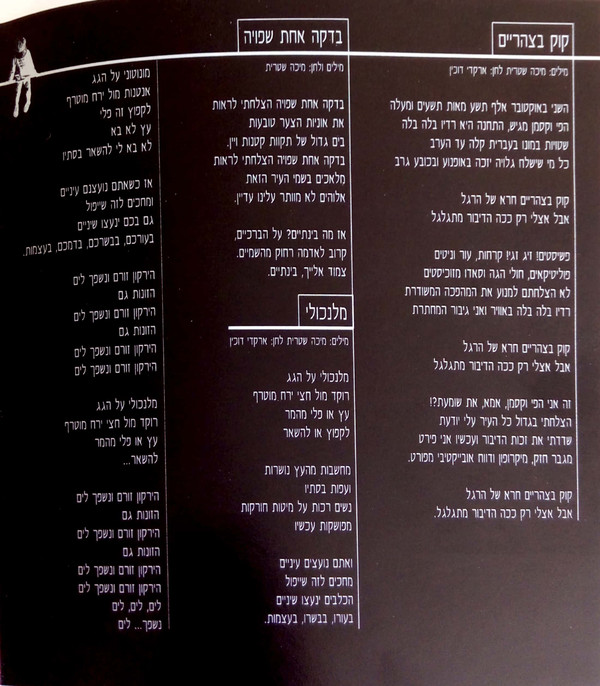 קוק בצהריים
מילים: מיכה שטרית לחן: ארקדי דוכין
השני באוקטובר אלף תשע מאות תשעים ומעלה
הפי וקסמן מגיש, התחנה היא רדיו בלה בלה
שטויות במונו בעברית קלה עד הערב
כל מי שישלח גלויה יזכה באופנוע ובכובע גרב
קוק בצהריים חרא של הרגל
אבל אצלי רק ככה הדיבור מתגלגל
פשיסטים! זיג זג! קרחות, עור וניטים
פוליטיקאים, חולי הגה וסאדו מזוכיסטים
לא הצלחתם למנוע את המהפכה המשודרת
רדיו בלה בלה באוויר ואני גיבור המחתרת
קוק בצהריים חרא של הרגל
אבל אצלי רק ככה הדיבור מתגלגל
זה אני הפי וקסמן, אמא, את שומעת?!
הצלחתי בגדול כל העיר עלי יודעת
שדדתי את זכות הדיבור ועכשיו אני פירט
מגבר חזק, מיקרופון ודווח אובייקטיבי מפורט.
קוק בצהריים חרא של הרגל
אבל אצלי רק ככה הדיבור מתגלגל.
בדקה אחת שפויה
מילים ולחן: מיכה שטרית
בדקה אחת שפויה הצלחתי לראות
את אוניות הצער טובעות
בים גדול של תקוות קטנות ויין.
בדקה אחת שפויה הצלחתי לראות
מלאכים בשמי העיר הזאת
אלוהים לא מוותר עלינו עדיין.
אז מה בינתיים? על הברכיים,
קרוב לאדמה רחוק מהשמיים.
צמוד אלייך, בינתיים.
מלנכולי
מילים: מיכה שטרית לחן: ארקדי דוכין
מלנכולי על הגג
רוקד מול חצי ירח מטורף
עץ או פלי מהמר
לקפוץ או להשאר
מחשבות מהעץ נושרות
ועפות בסתיו
נשים רכות על מיטות חורקות
מפושקות עכשיו
ואתם נועצים עיניים
מחכים לזה שייפול
הכלבים ינעצו שיניים
בעורו, בבשרו, בעצמות.
מונוטוני על הגג
אנטנות מול ירח מטורף
לקפוץ זה פלי
עץ לא בא
לא בא לי להשאר בסתיו
אז כשאתם נועצים עיניים
ומחכים לזה שייפול
גם בכם ינעצו שיניים
בעורכם, בבשרכם, בדמכם, בעצמות.
הירקון זורם ונשפך לים
הזונות גם
הירקון זורם ונשפך לים
הזונות גם
הירקון זורם ונשפך לים
הירקון זורם ונשפך לים
מלנכולי על הגג
רוקד מול חצי ירח מטורף
עץ או פלי מהמר
להשאר...
הירקון זורם ונשפך לים
הזונות גם
הירקון זורם ונשפך לים
הזונות גם
הירקון זורם ונשפך לים
הירקון זורם ונשפך לים
לים, לים, לים
נשפך... לים